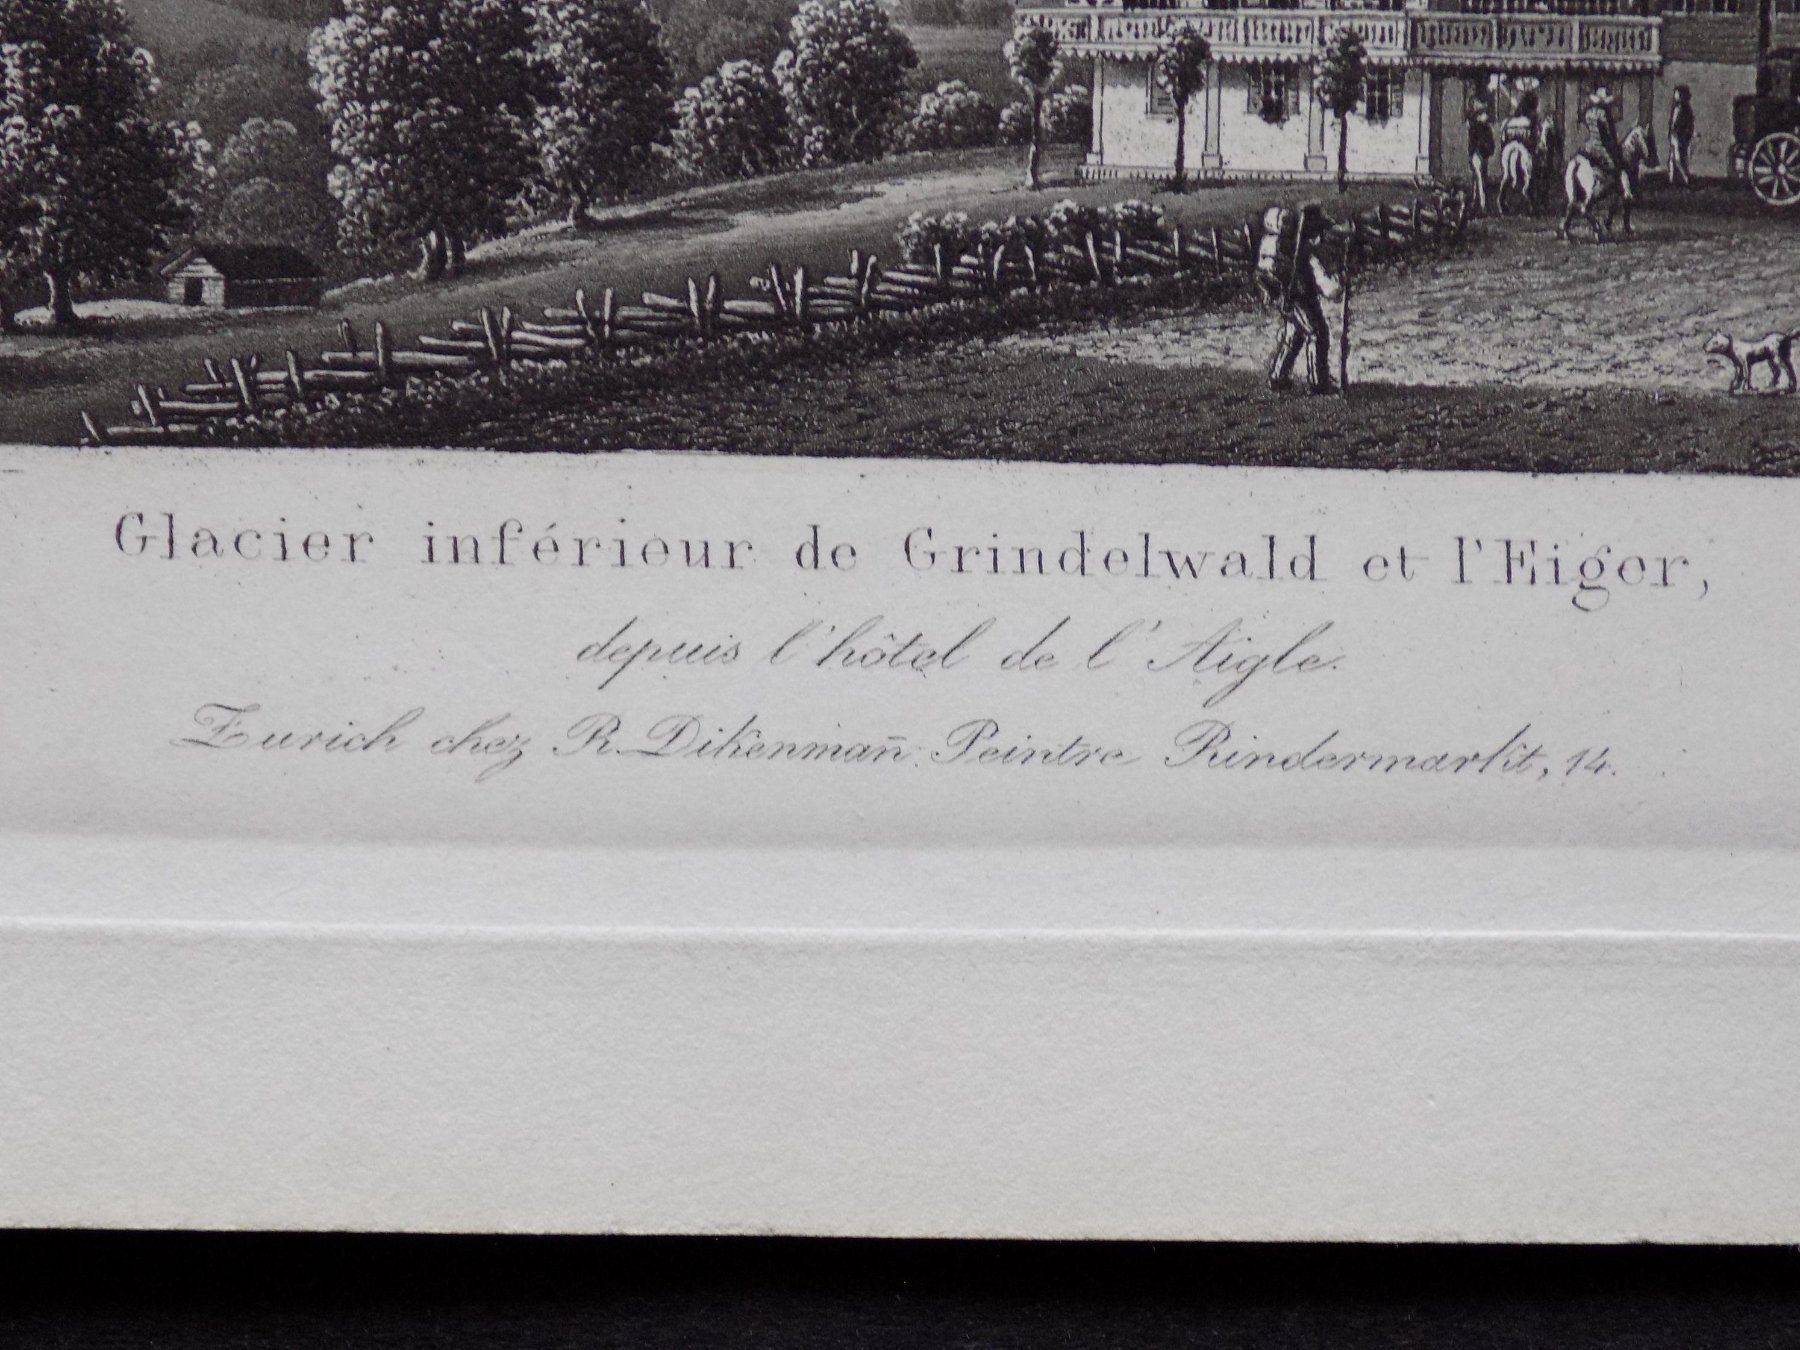 Glacier inférieur de Grindelwald et l'Eiger,
depuis l'hôtel de l'Aigle.
Zurich chez R. Dikenmañ. Peintre Rindermarkt, 14.